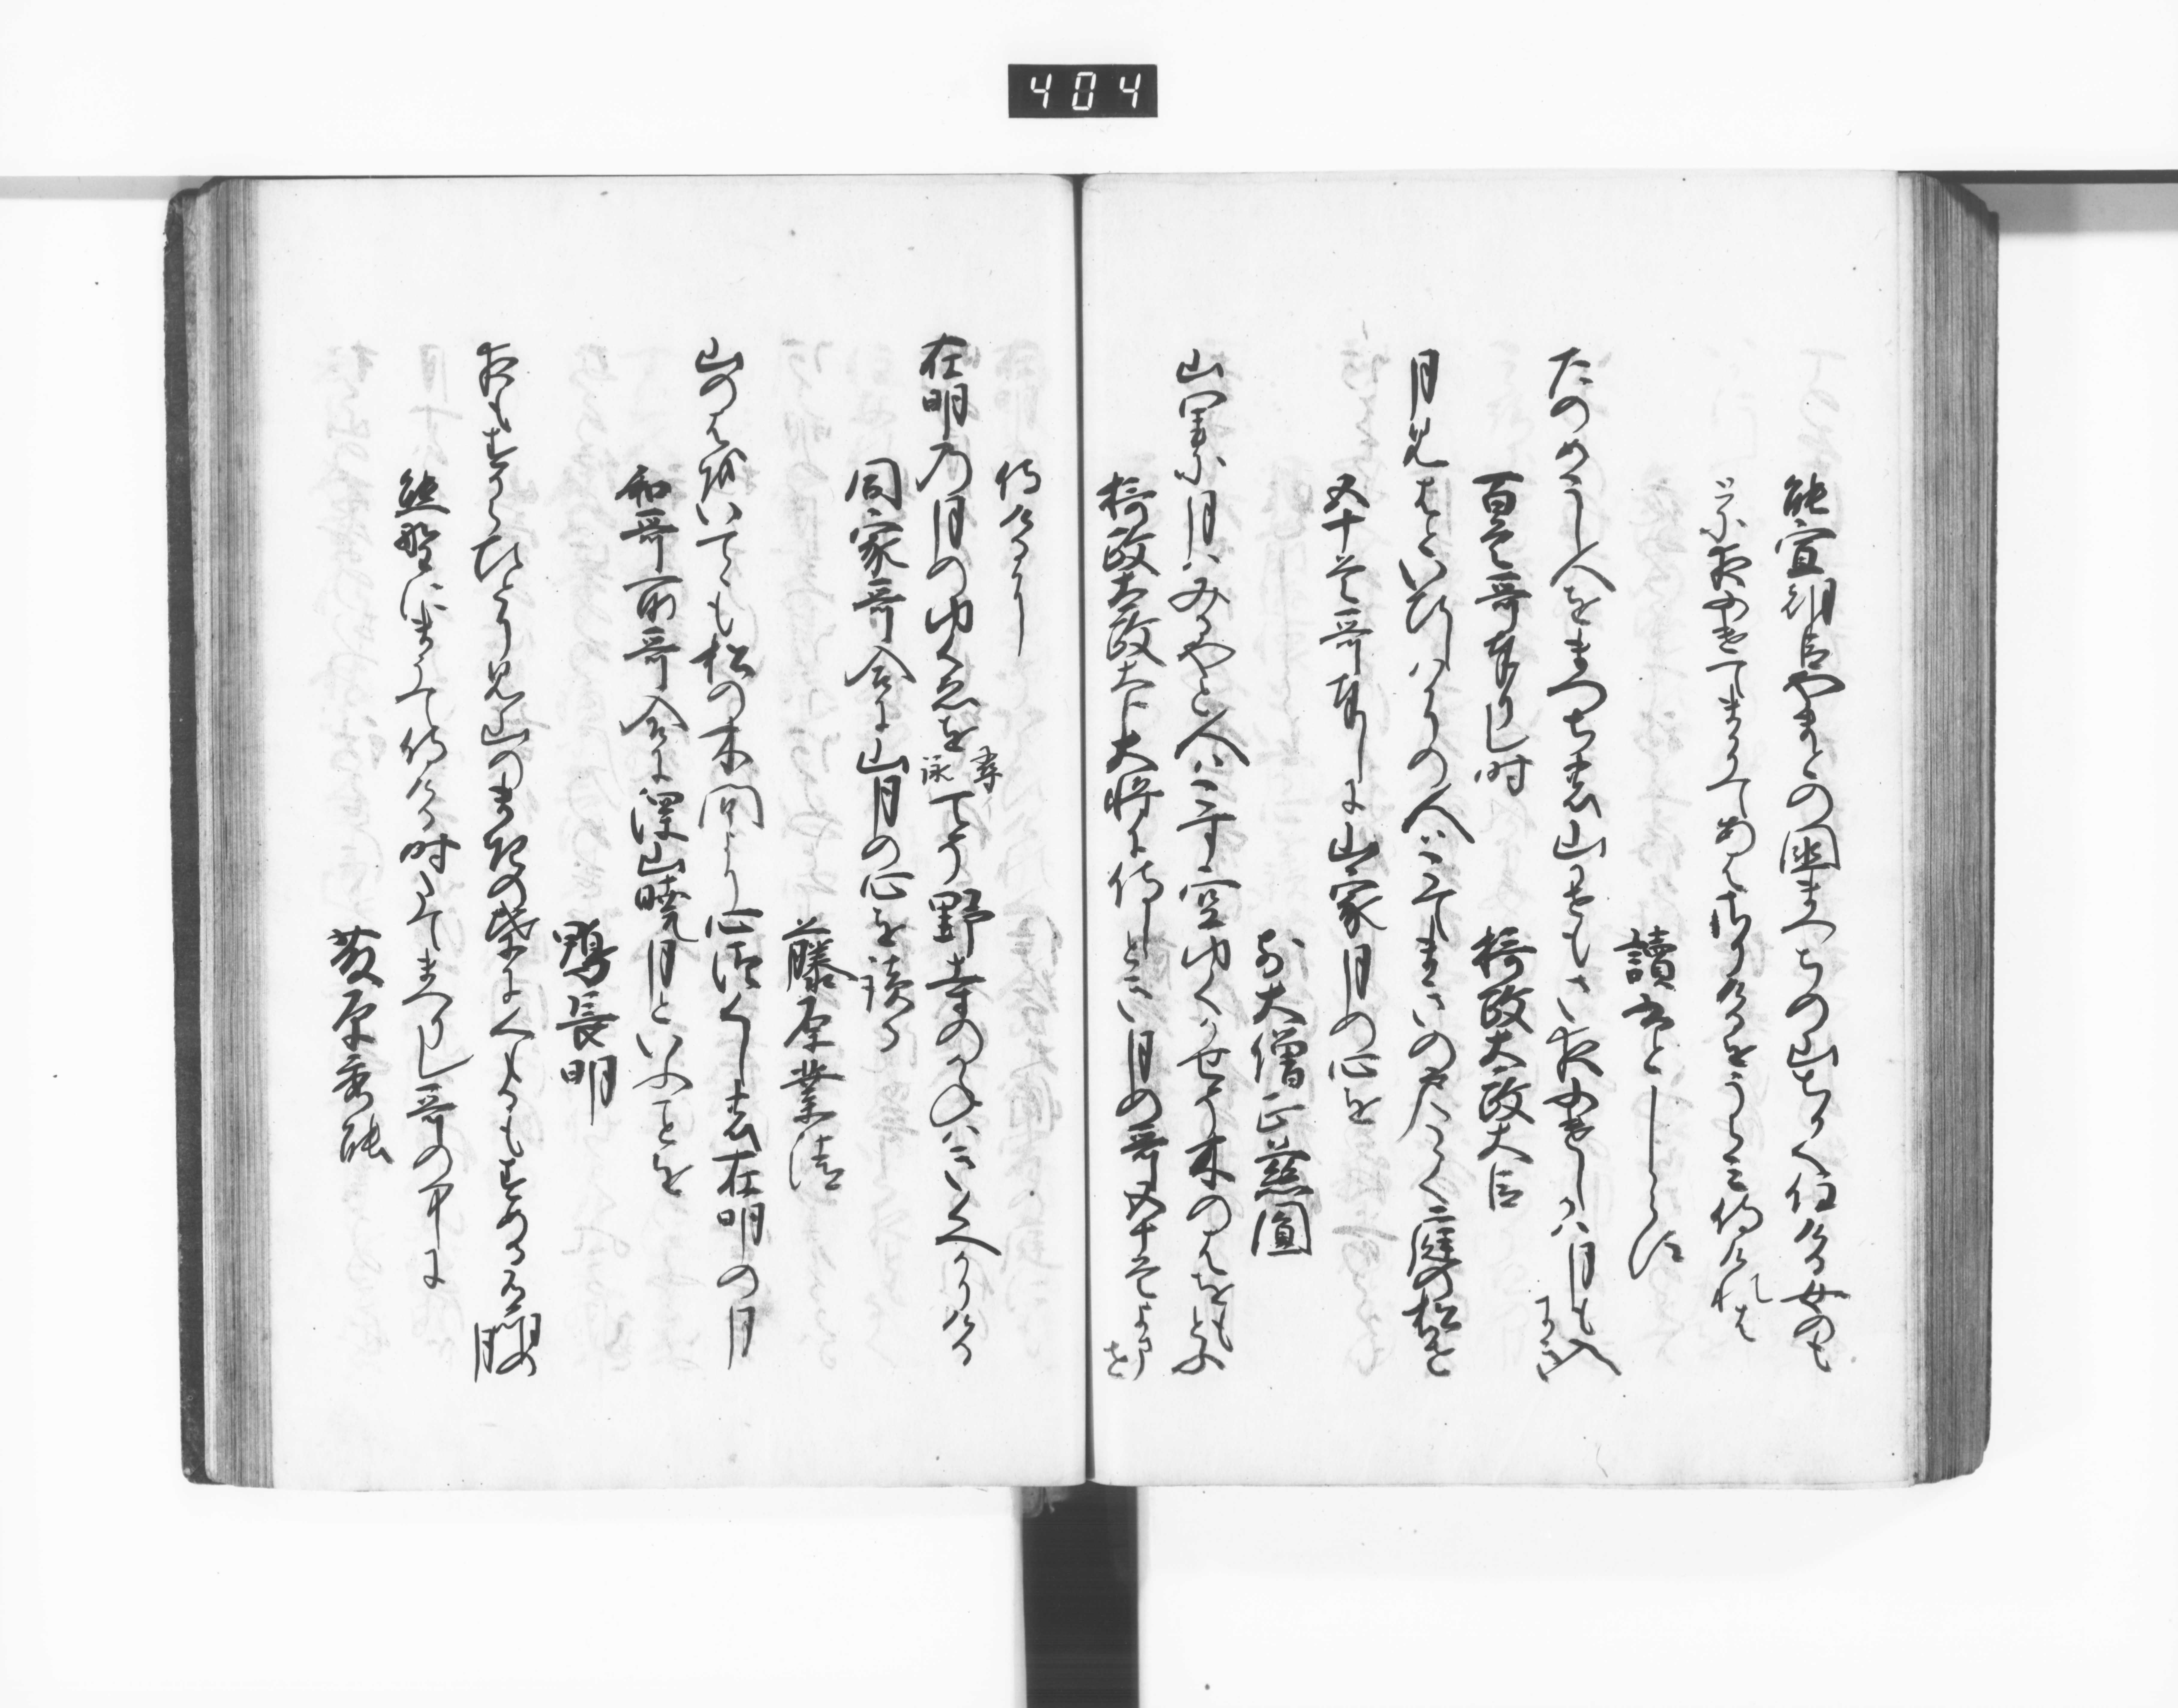 404
能宣朝臣やまとの国まつちの山ちかく住ける女のも
とに夜ふけてまかりてあはさりけるをうらみ侍けれは
讀人しらす
たのめこし人をまつちの山風にさ夜ふけしかは月も入
にき
百首哥奉りし時
摂政太政大臣
月見はといひしはかりの人はこてまきの戸たゝく庭の松を
五十首哥奉しに山家月の心を
前大僧正慈圓
山里に月はみるやと人はこす空ゆくかせそ木のはをもとふ
摂政太政大臣大将に侍しとき月の哥五十首よませ
侍けるに
在明の月のゆくゑを詠てそ野寺のかねはきくへかりける
尋
同家哥合に山月の心を読る
藤原業清
山のはをいてゝも松の木間より心つくしの在明の月
和哥所哥合に深山暁月といふことを
鴨長明
夜もすからひとり見山のまきの葉にくもるもすめる有明の
月
熊野にまうて侍ける時たてまつりし哥の中に
藤原秀能